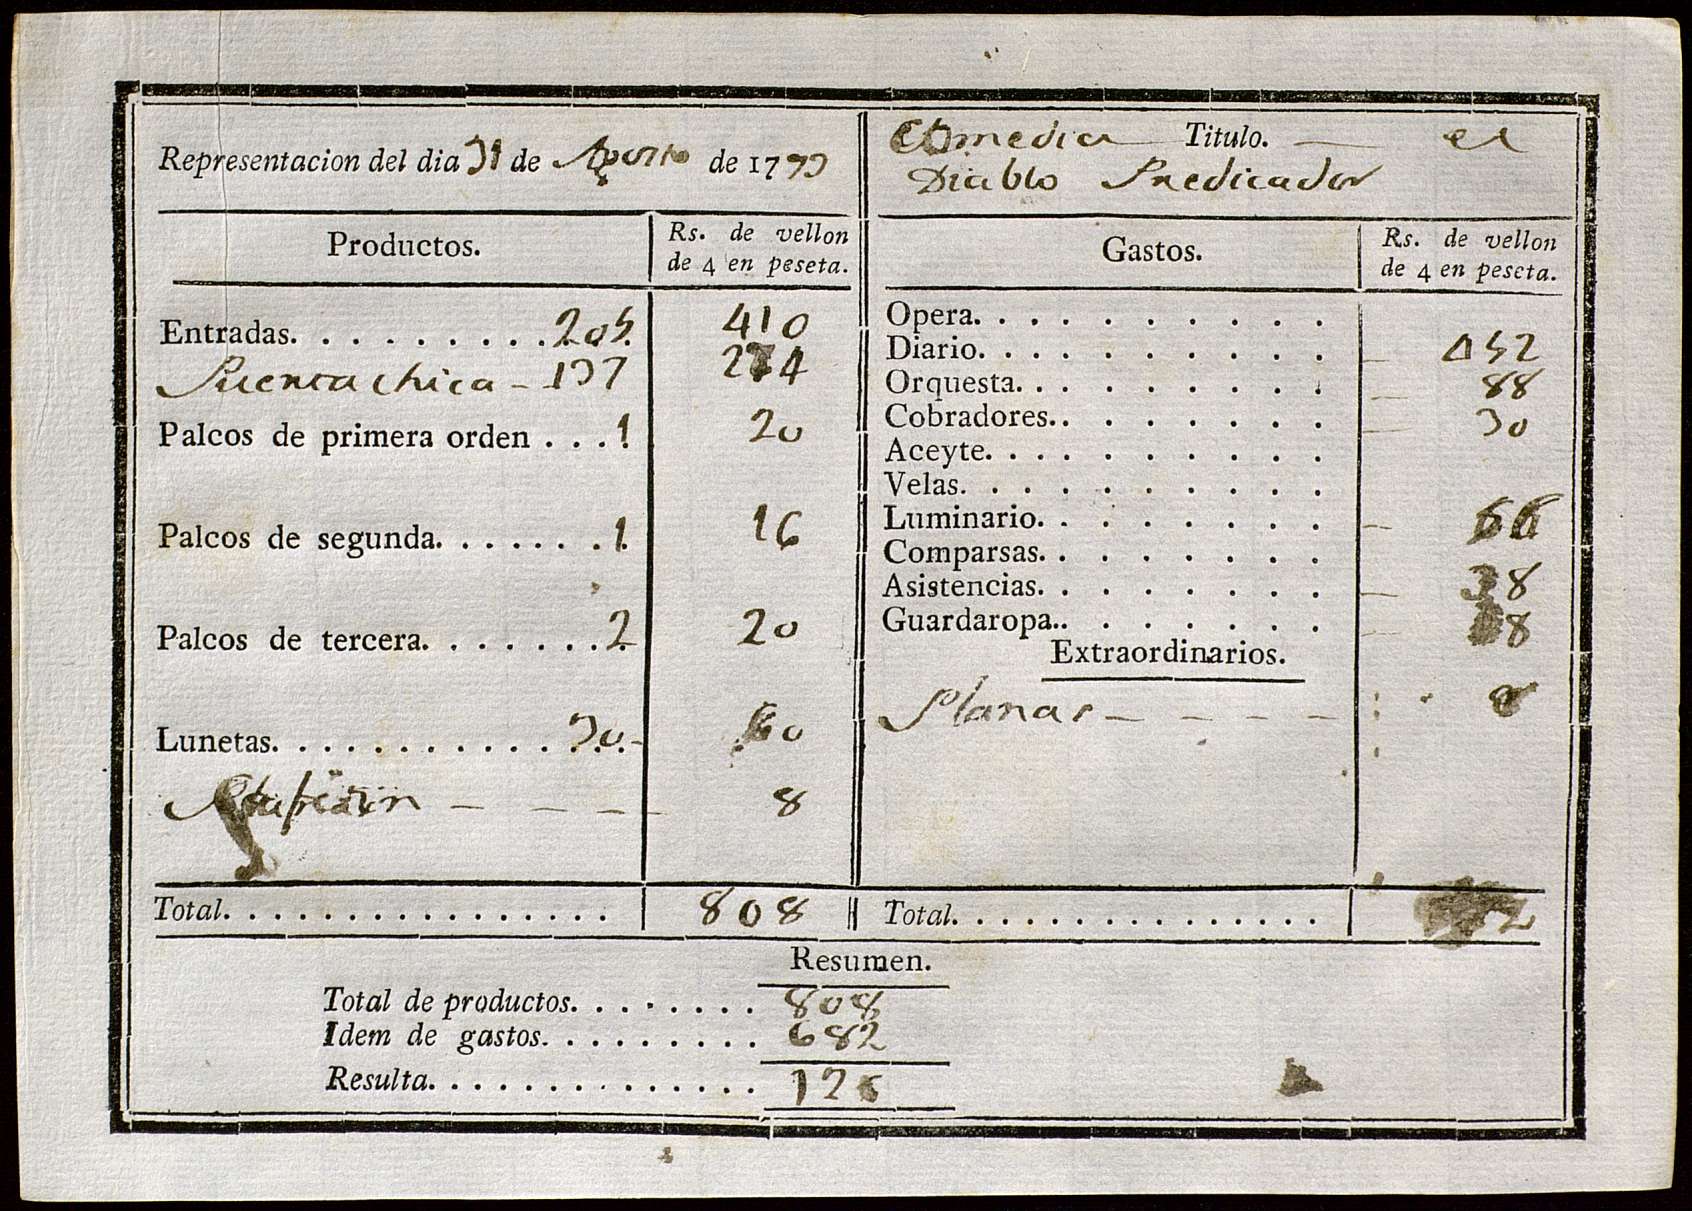 Representacion del dia 31 de Agosto de 1793
Comedia Titulo. el
Diablo Predicador
Productos. Rs. de vellon
de 4 en peseta.
Entradas. . . . . . . . . . 205. 410
Puerta chica - 137 274
Palcos de primera orden . . . 1 20
Palcos de segunda. . . . . . . 1 16
Palcos de tercera. . . . . . . 2 20
Lunetas. . . . . . . . . . . . 30 - 60
— — — 8
Total. . . . . . . . . . . . . . . . 808
Gastos. Rs. de vellon
de 4 en peseta.
Opera. . . . . . . . . . .
Diario. . . . . . . . . . . 452
Orquesta. . . . . . . . . 88
Cobradores. . . . . . . . 30
Aceyte. . . . . . . . . . .
Velas. . . . . . . . . . .
Luminario. . . . . . . . . 66
Comparsas. . . . . . . . .
Asistencias. . . . . . . . 38
Guardaropa. . . . . . . . 8
Extraordinarios.
Planas - - - - - 8
Total. . . . . . . . . . . . . . .
Resumen.
Total de productos. . . . . . . . 808
Idem de gastos. . . . . . . . . 682
Resulta. . . . . . . . . . . . . . 126